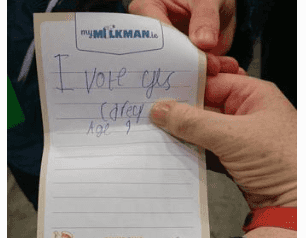 myMILKMAN.ie
I vote yes
Carey
age 9